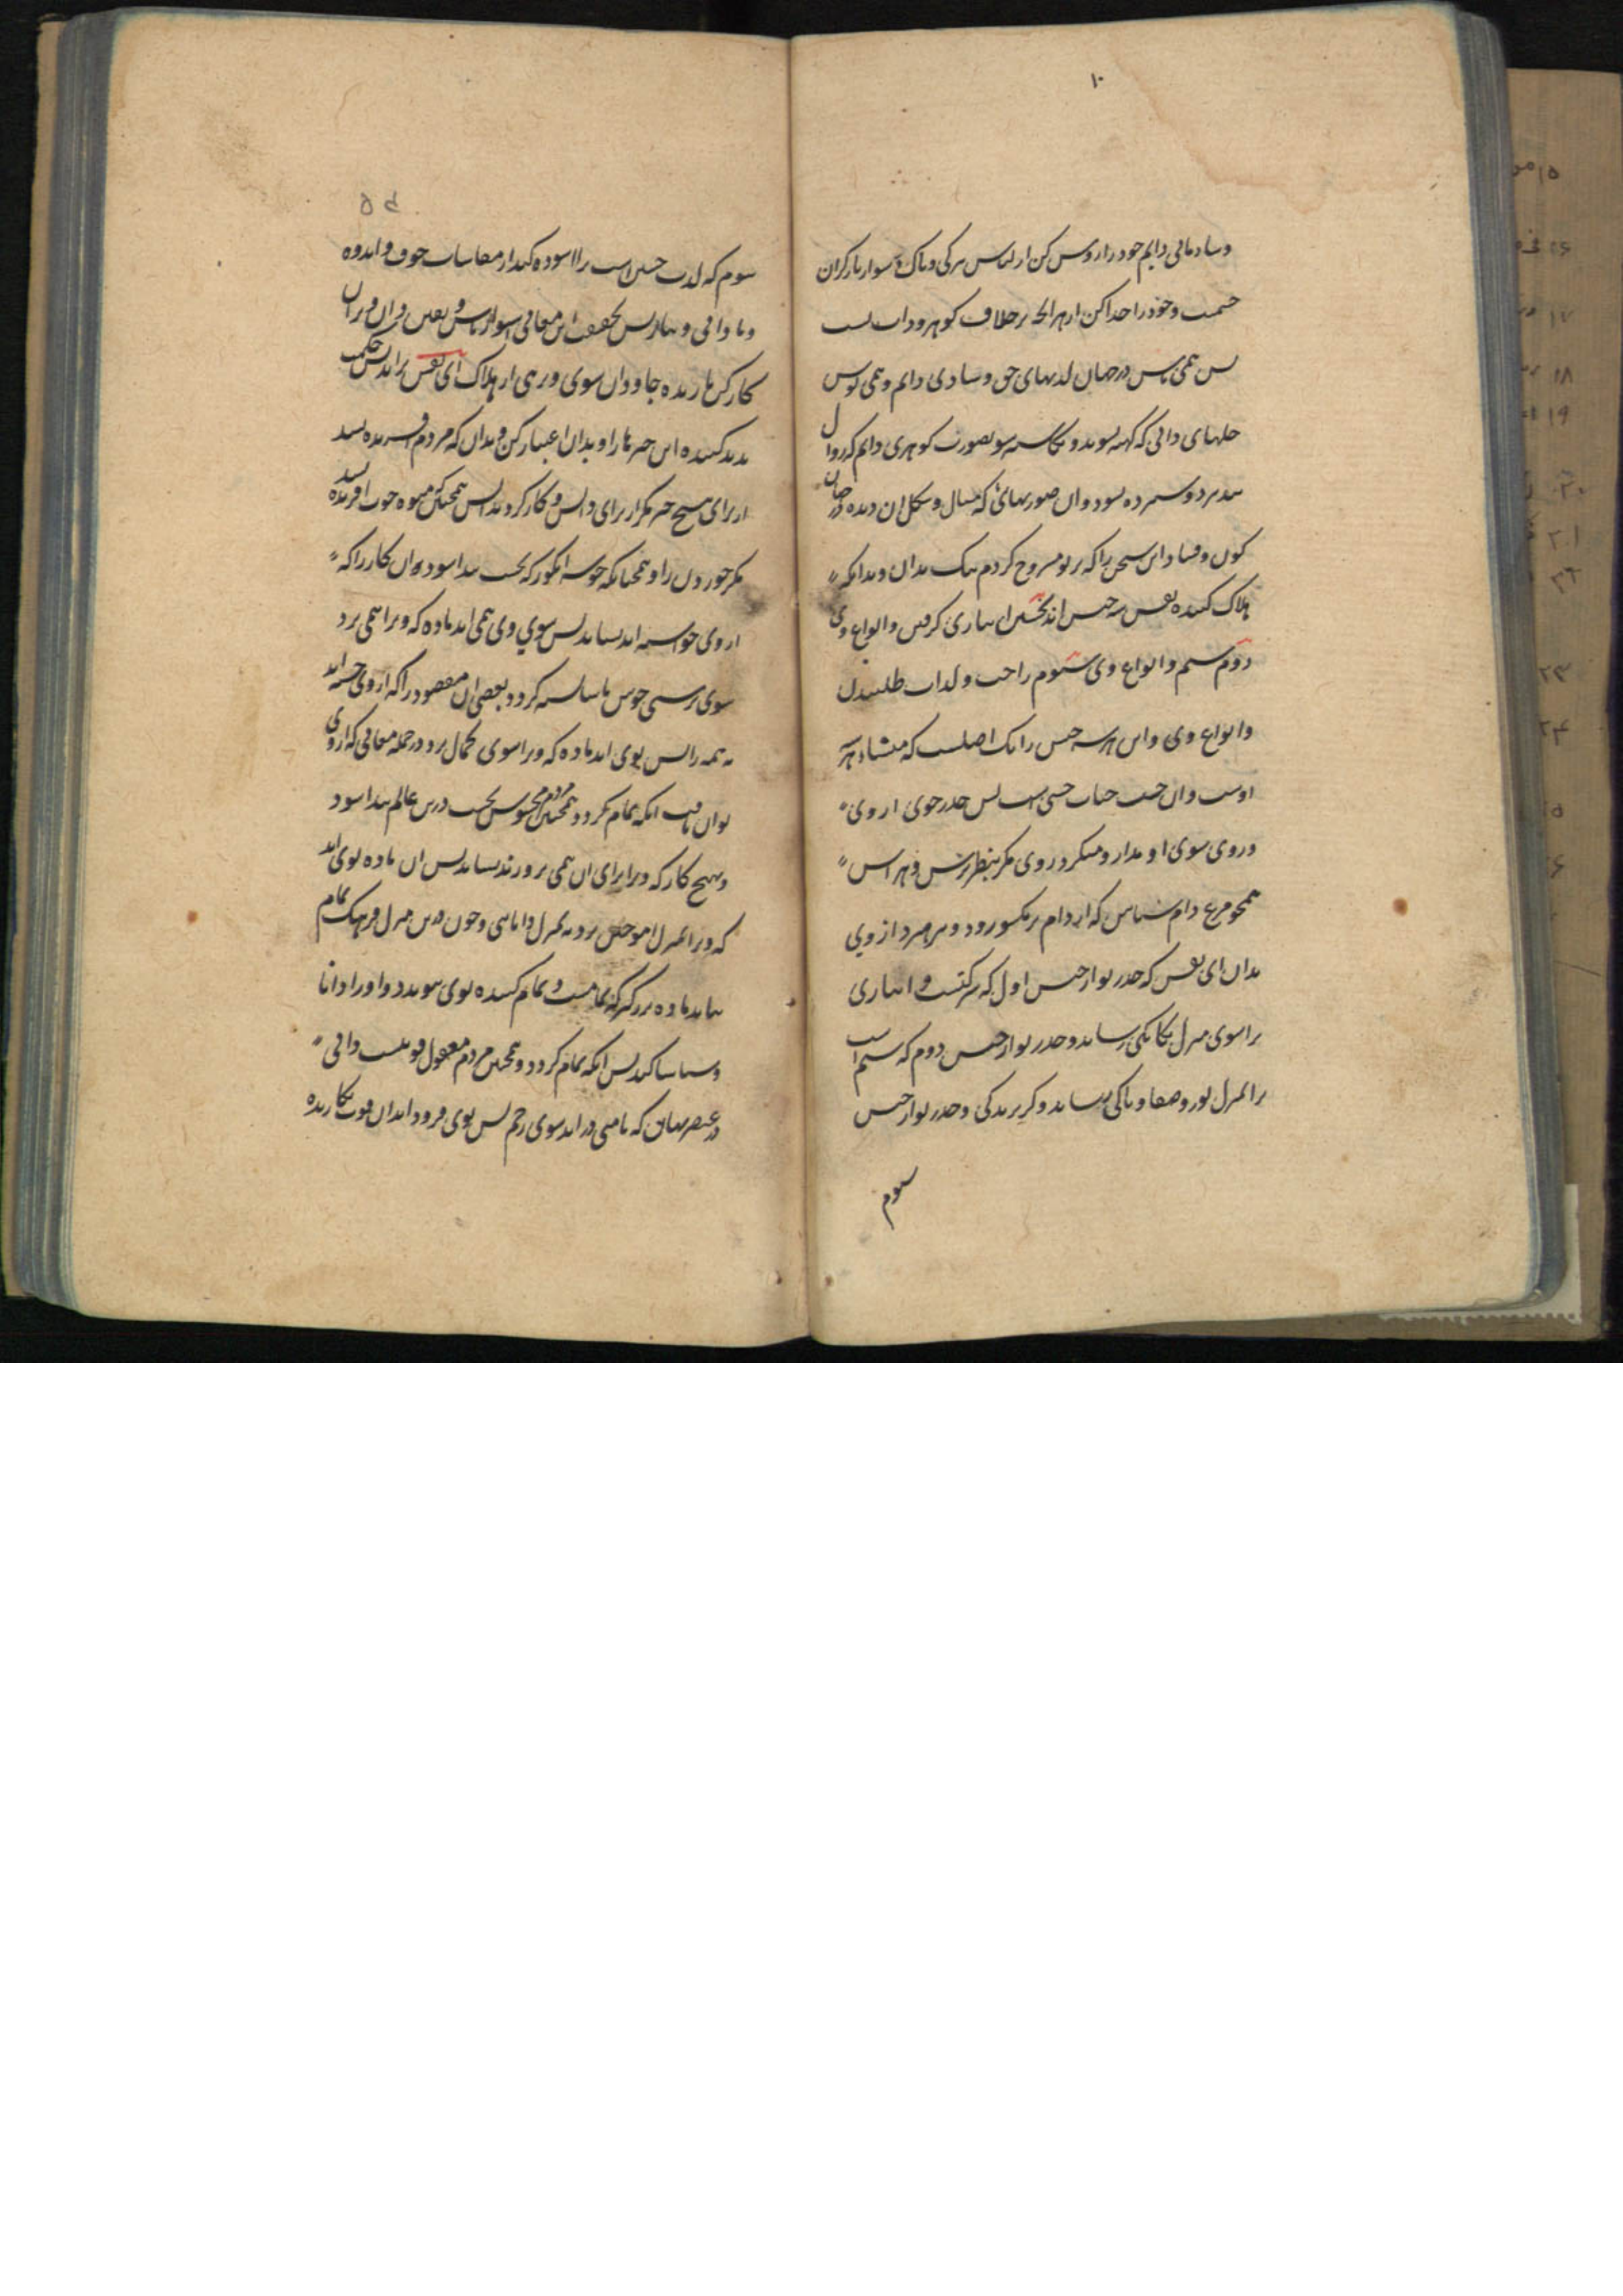 ۱۰
وشادمانی دایم خود را روشن کن از لباس تیرکی وپاک شو از بار کران
جسمت وخود را جدا کن از هر انچه بر خلاف کوهر وذات تست
پس همی باش در جهان لذتهای حق وشادی دایم وهمی پوش
حلهای ذاتی که کهنه نشوند ونکاشته شو بصورت کوهری دایم که زوال
نپذیرد وستمرده نشود وان صورتهائی که مثال وشکل ان دیده در جهان
کون وفساد این سخن را که بر تو مشروح کردم نیک بدان وبدانکه
هلاک کننده نفس سه جنس اند نخستین انبازی کرفتن وانواع وی
دوم ستم وانواع وی سیوم راحت ولذات طلبیدن
وانواع وی واین هر سه جنس را یک اصلست که منشاء هر سه
اوست وان حب حیات حسی است پس حذر جوی از وی
وروی سوی او مدار ومنکر در وی مکر بنظر ترس وهراس
همچو مرغ دام شناس که از دام بر یکسو رود وبپرهیزد از وی
بدان ای نفس که حذر تو از جنس اول که شرکتست وانبازی
ترا سوی منزل یکانکی رساند وحذر تو از جنس دوم که ستم است
ترا بمنزل نور وصفا وپاکی رساند وکریزندکی وحذر تو از جنس
سوم
سوم که لذت حسی است ترا اسوده کند از مقاسات خوف واندوه
ونادانی ونیاز پس بحقیقت این معانی استوار باش ویقین دان وبران
کار کن تا زنده جاودان شوی ورهی از هلاک ای نفس براندیش حکمت
پدید کننده این چیزها را وبدان اعتبار کن وبدان که مردم افریده نشد
از برای هیچ چیز مکر از برای دانش وکار کرد بدانش همچنانکه میوه خوب افریده نشد
مکر خوردن را وهمچنانکه خوشه انکور که نخست پیدا شود وان کار را که
از وی خواسته اند نشاید پس سوی وی همی اید ماده که ویرا همی برد
سوی ترشی خوش تا شایسته کردد بعضی ان مقصود را که از وی خواسته اند
نه همه را پس بوی اید ماده که ویرا سوی کمال برد در جمله معانی که از وی
توان یافت انکه تمام کردد همچنین مردم محسوس نخست درین عالم پیدا شود
وبهیچ کار که ویرا برای ان همی پرورند نشاید پس ان ماده بوی اید
که ویرا بمنزل اموختن برد نه بمنزل دانائی وچون درین منزل فرهنک تمام
بیابد ماده بزرکتر که تمامست وتمام کننده بوی پیوندد واو را دانا
وشناسا کند پس انکه تمام کردد وهمچنین مردم معقول قوتیست ذاتی
در عنصر نبات که با منی در اید سوی رحم پس بوی فرود اید ان قوت نکارنده